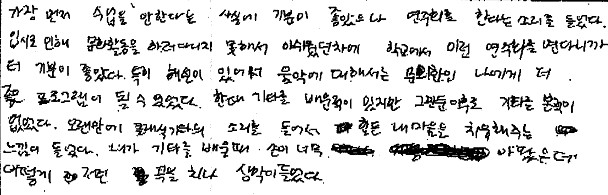 가장 먼저 수업을 안한다는 사실에 기분이 좋았으나 연주회를 한다는 소리를 들었다.
입시로 인해 문화활동을 하러다니지 못해서 아쉬웠던차에 학교에서 이런 연주회를 연다니까
더 기분이 좋았다. 특히 해설이 있어서 음악에 대해서는 문외한인 나에게 더
좋은 프로그램이 될 수 있었다. 한때 기타를 배운적이 있지만 그만둔이후로 기타를 본적이
없었다. 오랜만에 클래식기타의 소리를 들어서 힘든 내마음을 치유해주는
느낌이 들었다. 내가 기타를 배울때 손이 너무 아팠는데
어떻게 저런 곡을 치나 생각이들었다.